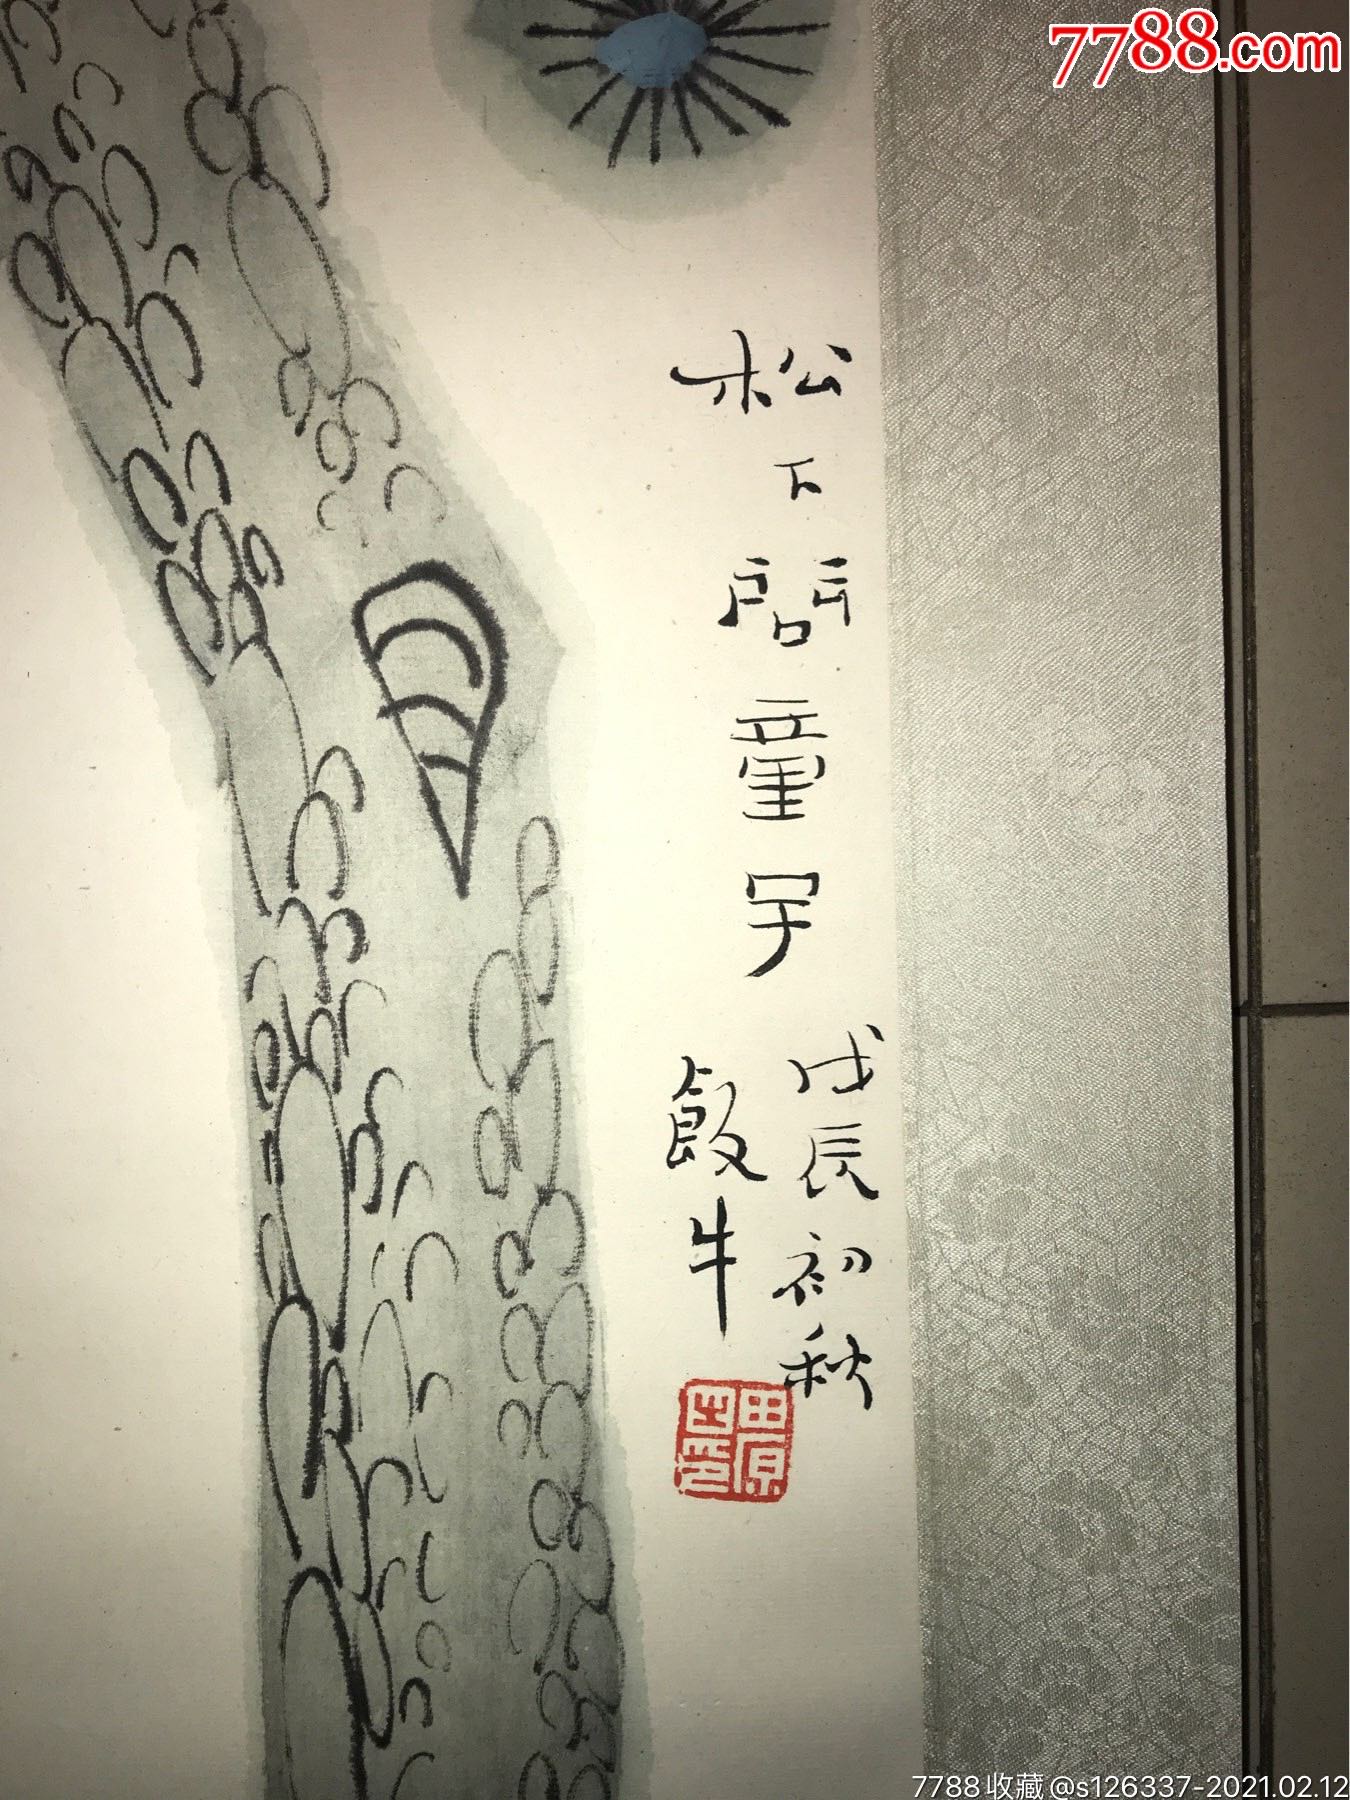 7788.com
松下問童子
戊辰初秋
飯牛
田原
7788收藏@s126337-2021.02.12